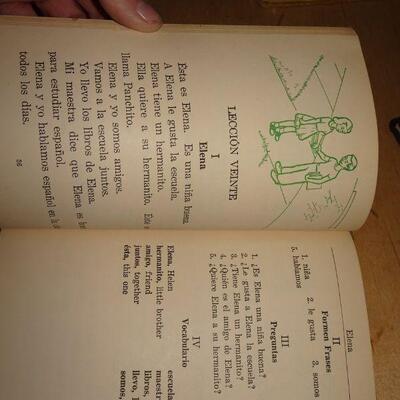 LECCIÓN VEINTE
I
Elena
Ésta es Elena. Es una niña buena.
A Elena le gusta la escuela.
Elena tiene un hermanito.
Ella quiere a su hermanito. Éste se
llama Panchito.
Elena y yo somos amigos.
Vamos a la escuela juntos.
Yo llevo los libros de Elena.
Mi maestra dice que Elena es
para estudiar español.
Elena y yo hablamos español en la
todos los días.
36
Elena
II
Formen Frases
1. niña 2. le gusta 3. somos
5. hablamos
III
Preguntas
1. ¿Es Elena una niña buena?
2. ¿Le gusta a Elena la escuela?
3. ¿Tiene Elena un hermanito?
4. ¿Quién es el amigo de Elena?
5. ¿Quiere Elena a su hermanito?
IV
Vocabulario
Elena, Helen
hermanito, little brother
amigo, friend
juntos, together
ésta, this one
escuela
libros,
llevo,
somos,